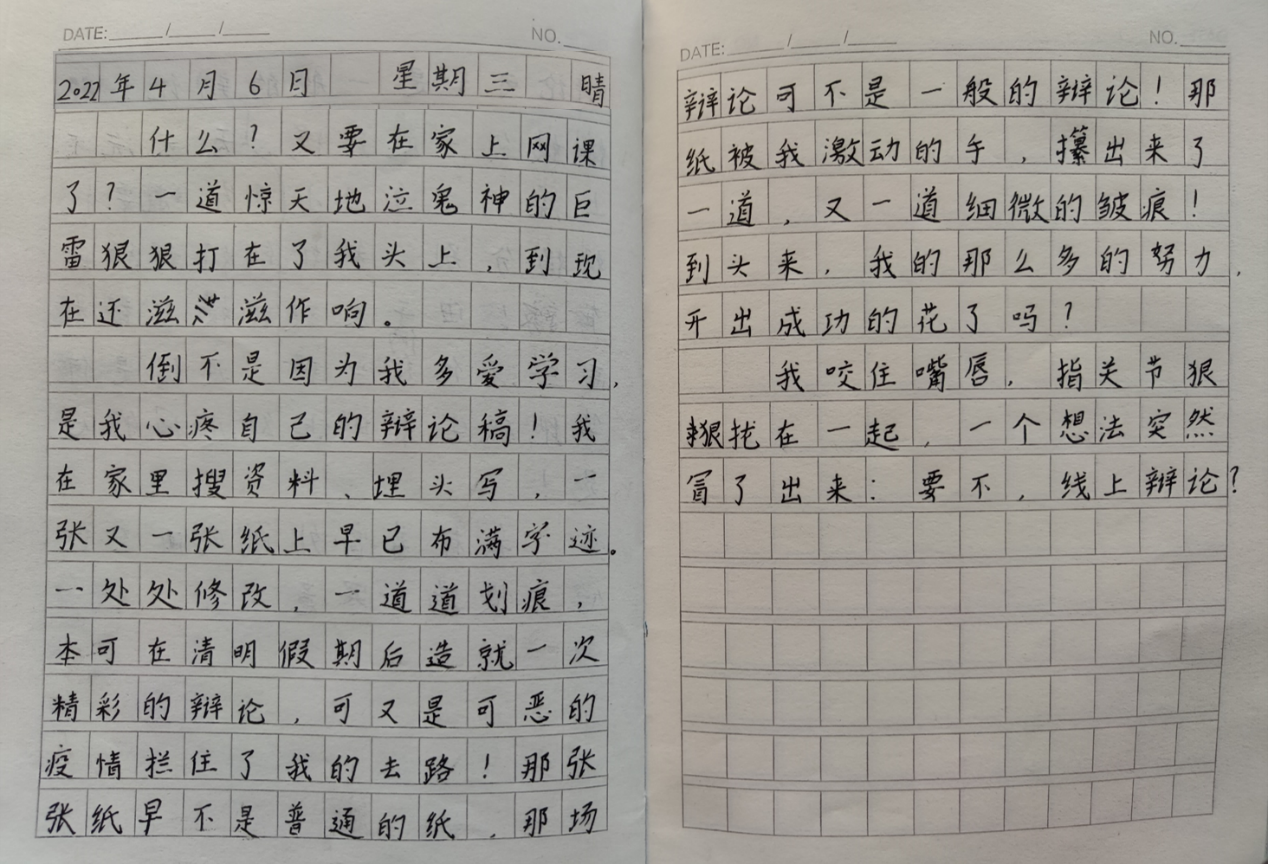 DATE: / /
NO.
2022年4月6日 星期三 晴
什么？又要在家上网课
了？一道惊天地泣鬼神的巨
雷狠狠打在了我头上，到现
在还滋滋作响。
倒不是因为我多爱学习，
是我心疼自己的辩论稿！我
在家里搜资料、埋头写，一
张又一张纸上早已布满字迹。
一处处修改，一道道划痕，
本可在清明假期后造就一次
精彩的辩论，可又是可恶的
疫情拦住了我的去路！那张
张纸早不是普通的纸，那场
DATE: / /
NO.
辩论可不是一般的辩论！那
纸被我激动的手，攥出来了
一道，又一道细微的皱痕！
到头来，我的那么多的努力，
开出成功的花了吗？
我咬住嘴唇，指关节狠
狠拢在一起，一个想法突然
冒了出来：要不，线上辩论？